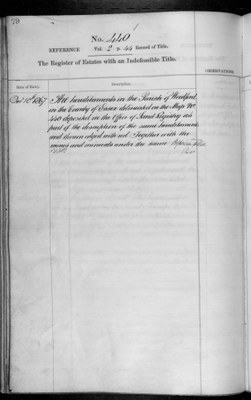 79
No. 440
REFERENCE Vol. 2 p. 44 Record of Title.
The Register of Estates with an Indefeasible Title.
OBSERVATIONS
Date of Entry. Description.
1867 All hereditaments in the Parish of Woodford
in the County of Essex delineated on the Map No
440 deposited in the Office of Land Registry as
part of the description of the same hereditaments
and thereon edged with red Together with the
mines and minerals under the same